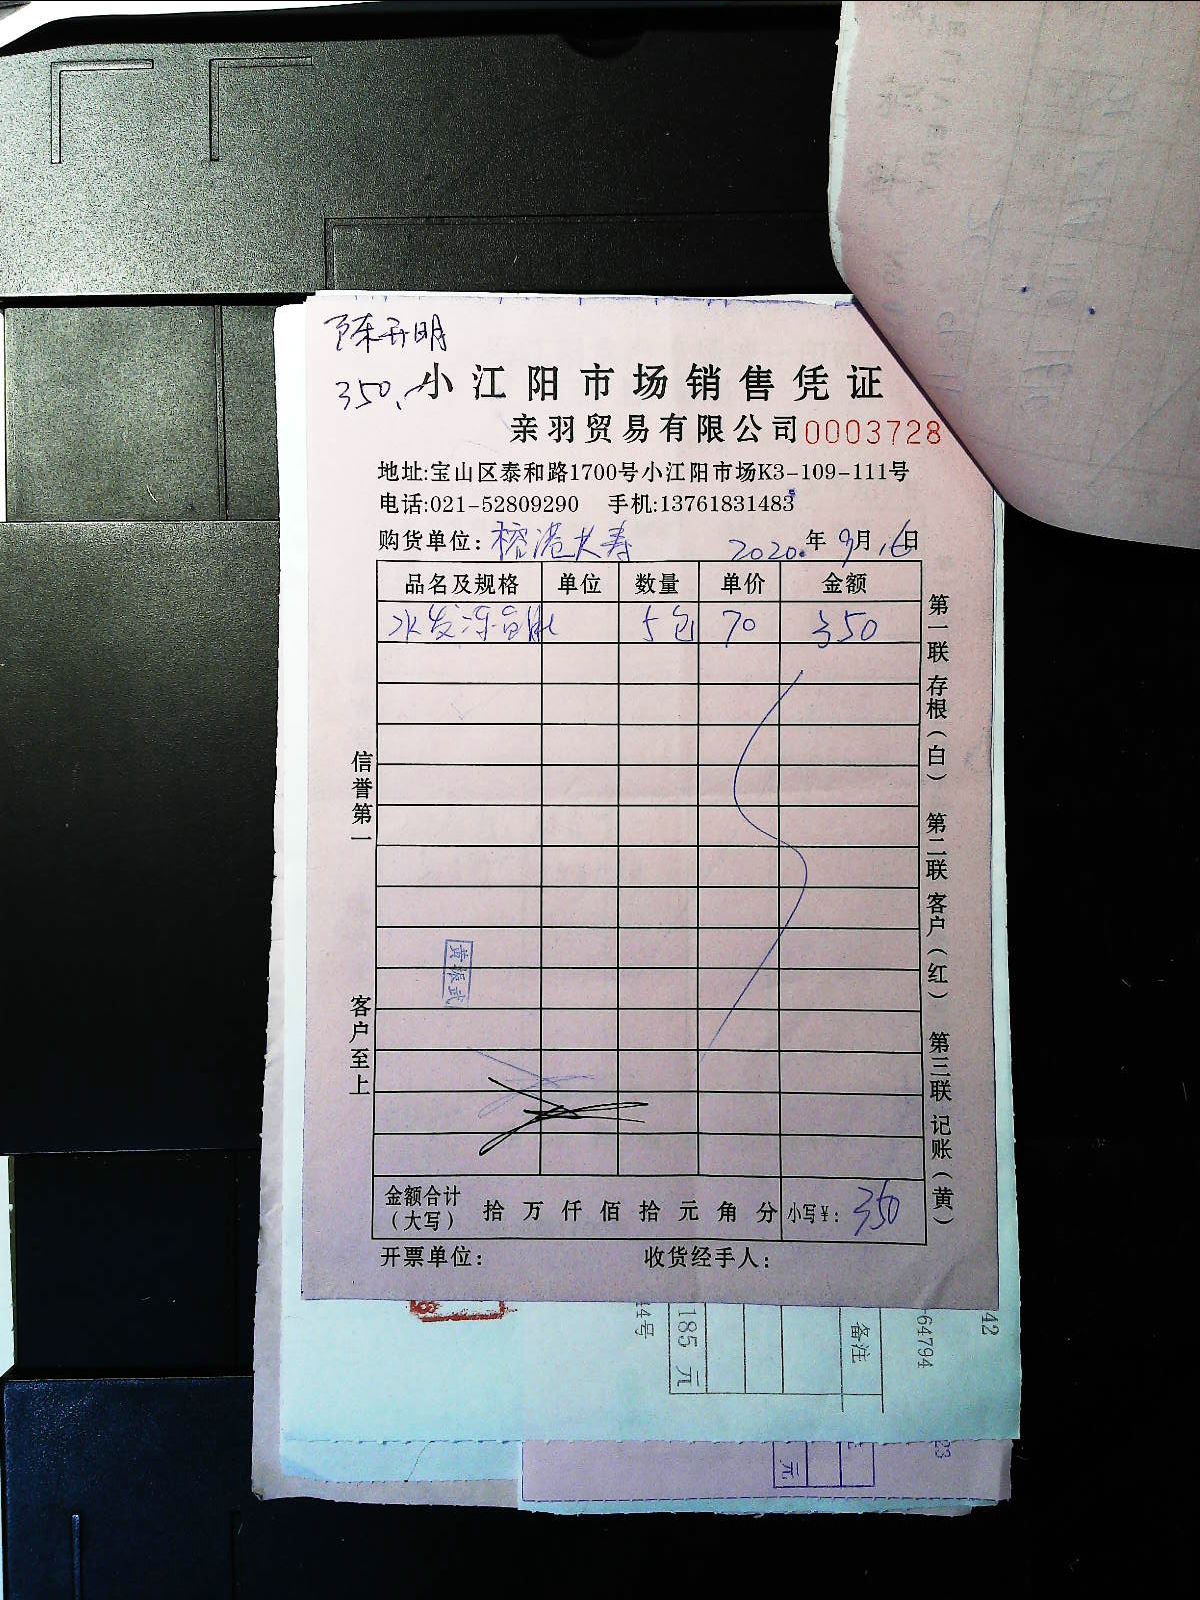 陈开明
350、
小江阳市场销售凭证
亲羽贸易有限公司 0003728
地址:宝山区泰和路1700号小江阳市场K3-109-111号
电话:021-52809290 手机:13761831483
购货单位: 榕港长寿 2020.年9月16日
品名及规格 单位 数量 单价 金额
水发冻鱼肚 5包 70 350
第一联 存根（白） 第二联 客户（红） 第三联 记账（黄）
信誉第一
客户至上
黄振武
金额合计（大写） 拾 万 仟 佰 拾 元 角 分 小写¥: 350
开票单位: 收货经手人:
185 元
备注
64794
42
元
23